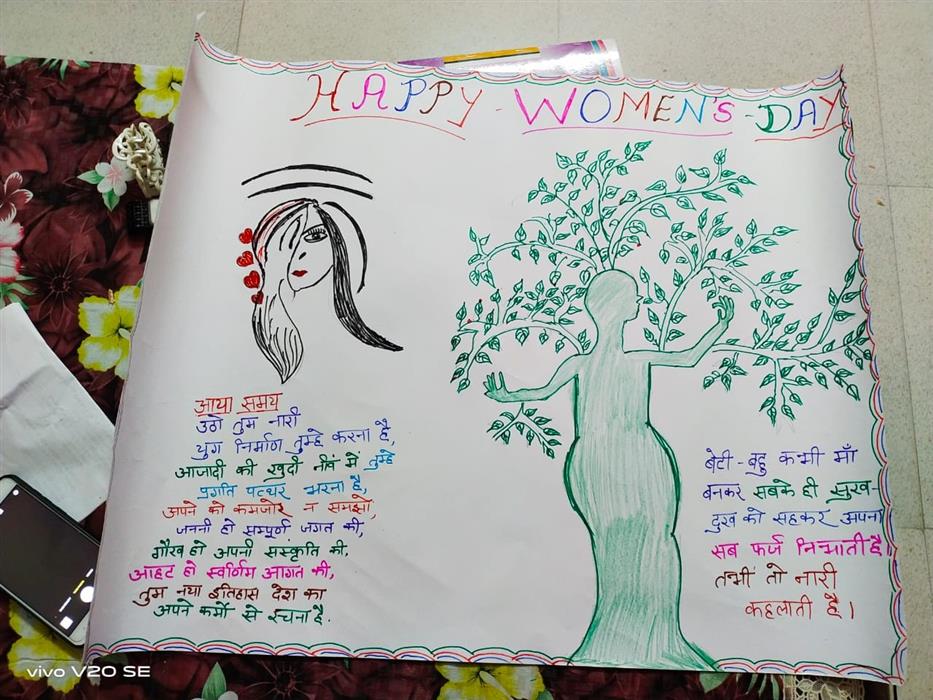 HAPPY - WOMEN'S - DAY
आया समय
उठो तुम नारी
युग निर्माण तुम्हे करना है,
आजादी की खुदी नीवं में तुम्हे
प्रगति पत्थर भरना है,
अपने को कमजोर न समझो,
जननी हो सम्पूर्ण जगत की,
गौरव हो अपनी संस्कृति की,
आहट हो स्वर्णिम आगत की,
तुम नया इतिहास देश का
अपने कर्मो से रचना है.
बेटी - बहु कभी माँ
बनकर सबके ही सुख-
दुख को सहकर अपना
सब फर्ज निभाती है।
तभी तो नारी
कहलाती है।
vivo V20 SE